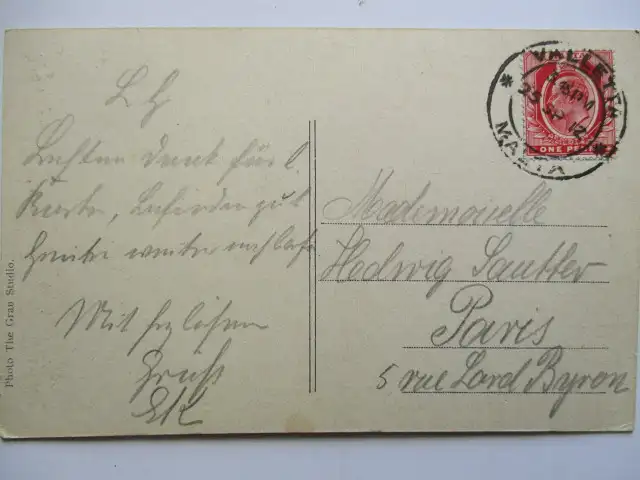 L H
Besten Dank für l.
Karte, befinden gut
Heute weiter nach
Mit herzlichem
Gruß
EK
Photo The Grav Studio.
VALLETTA
25 SP 12
MALTA
ONE PE
Mademoiselle
Hedwig Sautter
Paris
5 rue Lord Byron